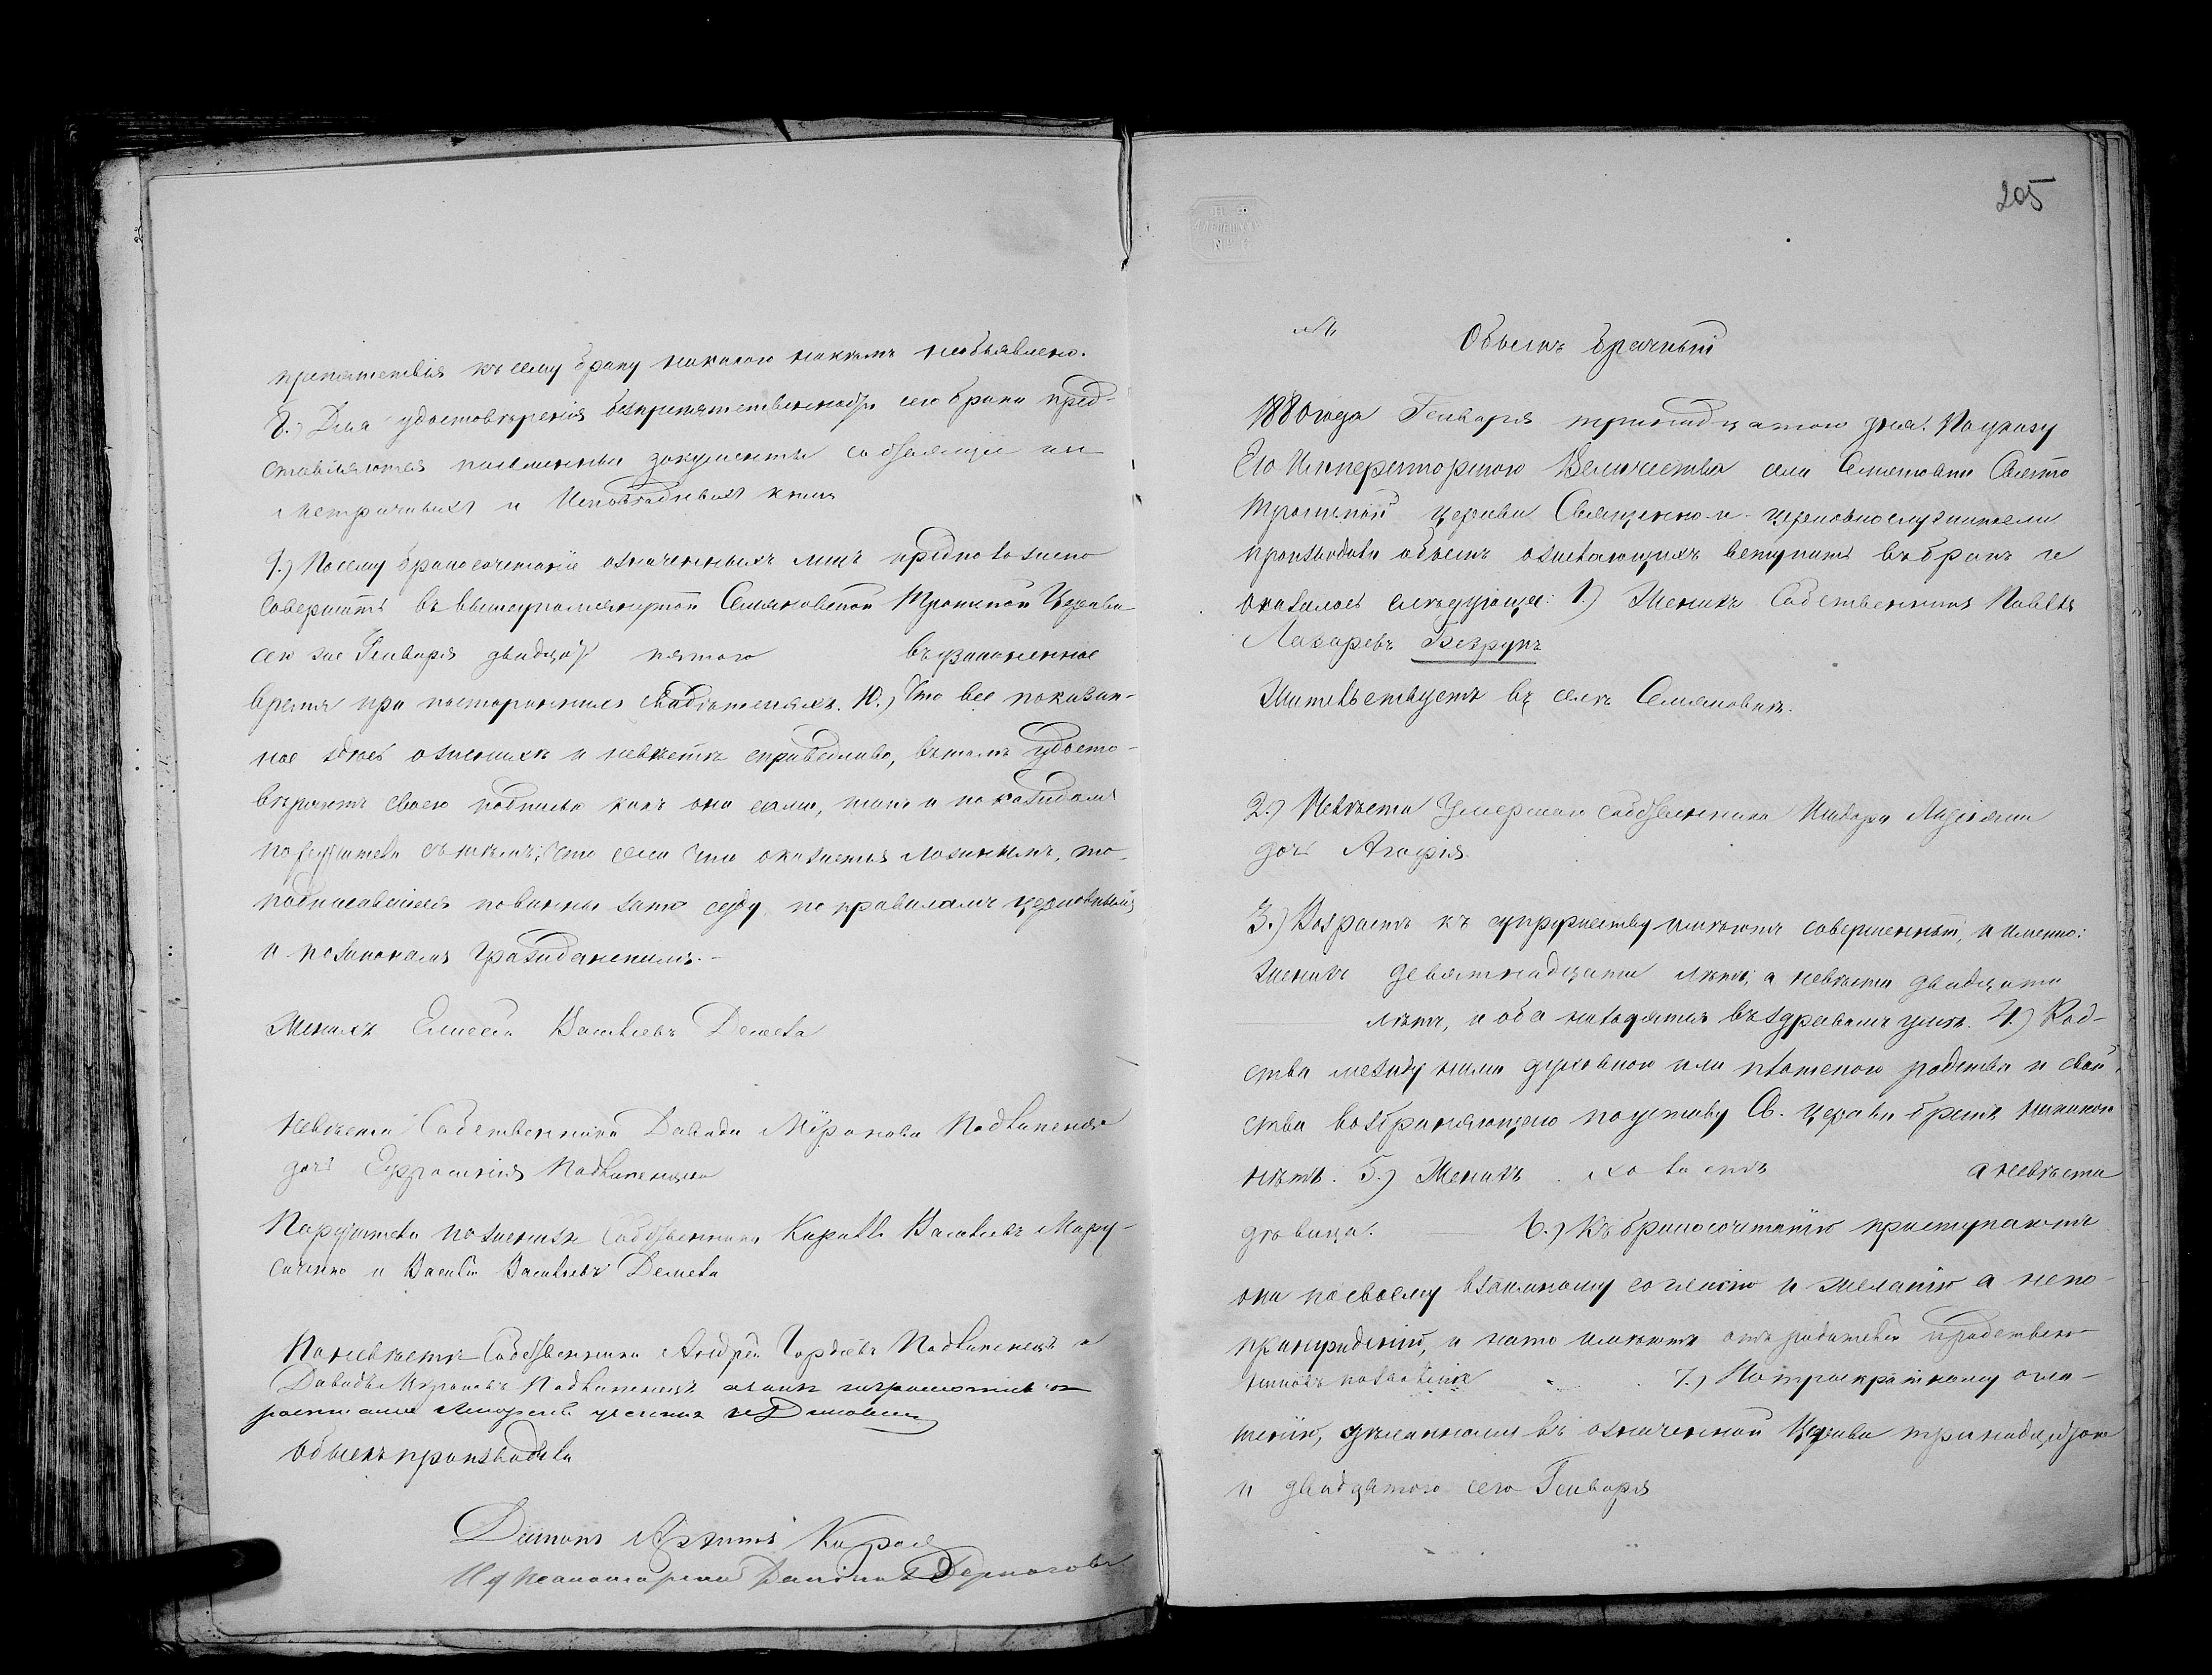 препятствія къ сему браку никакого никѣмъ необъявлено.
8.) Для удостовѣренія безпрепятственности сего брака пред-
ставляются письменныи документы
Метричныхъ и Исповѣдныхъ книгъ
9.) Посему бракосочетаніе означенныхъ лицъ предположено
совершить въ вышеупомянутой Семяновской Троицкой Церкви
сего Генваря двадцать пятого въ узаконенное
время при постороннихъ свидѣтеляхъ. 10.) Что все показан-
ное здѣсь о женихѣ и невѣстѣ справедливо, въ томъ удосто-
вѣряютъ своею подписью какъ они сами, такъ и по каждомъ
поручители съ тѣмъ, что если что окажется ложнымъ, то
подписавшіеся повинны зато суду по правиламъ церковнымъ
и позаконамъ гражданскимъ.-
Женихъ Елисей Васильевъ Демета
Невѣста Собственника Давида Миронова Подвипенск
дочь Ефросинія
Поручители по женихѣ Собственники Кирилъ Васильевъ Мару-
сиченко и Василій Васильевъ Демета
По невѣстѣ Собственники Андрей Гордѣевъ и
Давидъ Мироновъ
Обыскъ производили
Дьячекъ
И д Псаломщика
205
№
Обыскъ брачный
1880 года Генваря тринадцатого дня. По указу
Его Императорского Величества села Семяновки Свято
Троицкой церкви Священно-и-церковнослужители
производили обыскъ о желающихъ вступить въ бракъ и
оказалось слѣдующее: 1.) Женихъ Собственникъ Павелъ
Лазаревъ Безрукъ
Жительствуетъ въ селѣ Семяновкѣ.
2.) Невѣста Умершаго собственника
дочь Агафія.
3.) Возрастъ къ супружеству имѣютъ совершенный, а именно:
женихъ девятнадцати лѣтъ, а невѣста двадцати
лѣтъ, и оба находятся въ здравомъ умѣ. 4.) Род-
ства между ними духовного или плотского родства и свой-
ства возбраняющего по уставу Св. церкви бракъ никакого
нѣтъ. 5.) Женихъ холостъ а невѣста
дѣвица. 6.) Къ бракосочетанію приступаютъ
они по своему взаимному согласію и желанію а непо
принужденію, и на то имѣютъ отъ родителей
позволеніе 7.) По троекратному огла-
шенію, сдѣланному въ означенной Церкви тринадцатого
и двадцатого сего Генваря